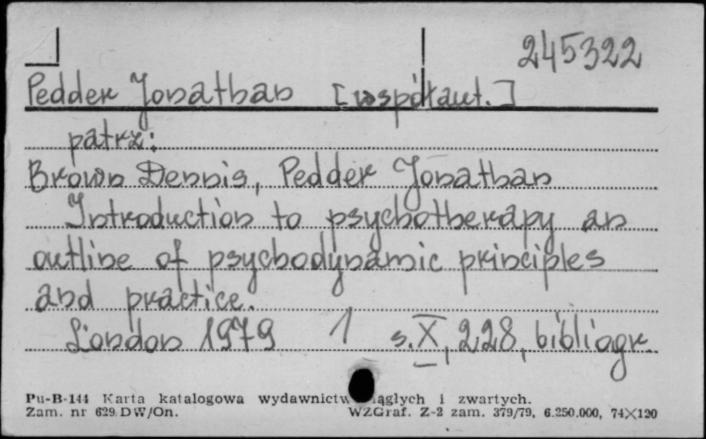 245322
Pedder Jonathan [współaut.]
patrz:
Brown Dennis, Pedder Jonathan
Introduction to psychotherapy an
outline of psychodynamic principles
and practice.
London 1979 1 s. X, 228, bibliogr.
Pu-B-144 Karta katalogowa wydawnictw ągłych i zwartych.
Zam. nr 629 DW/On. WZGraf. Z-2 zam. 379/79, 6.250.000, 74X120